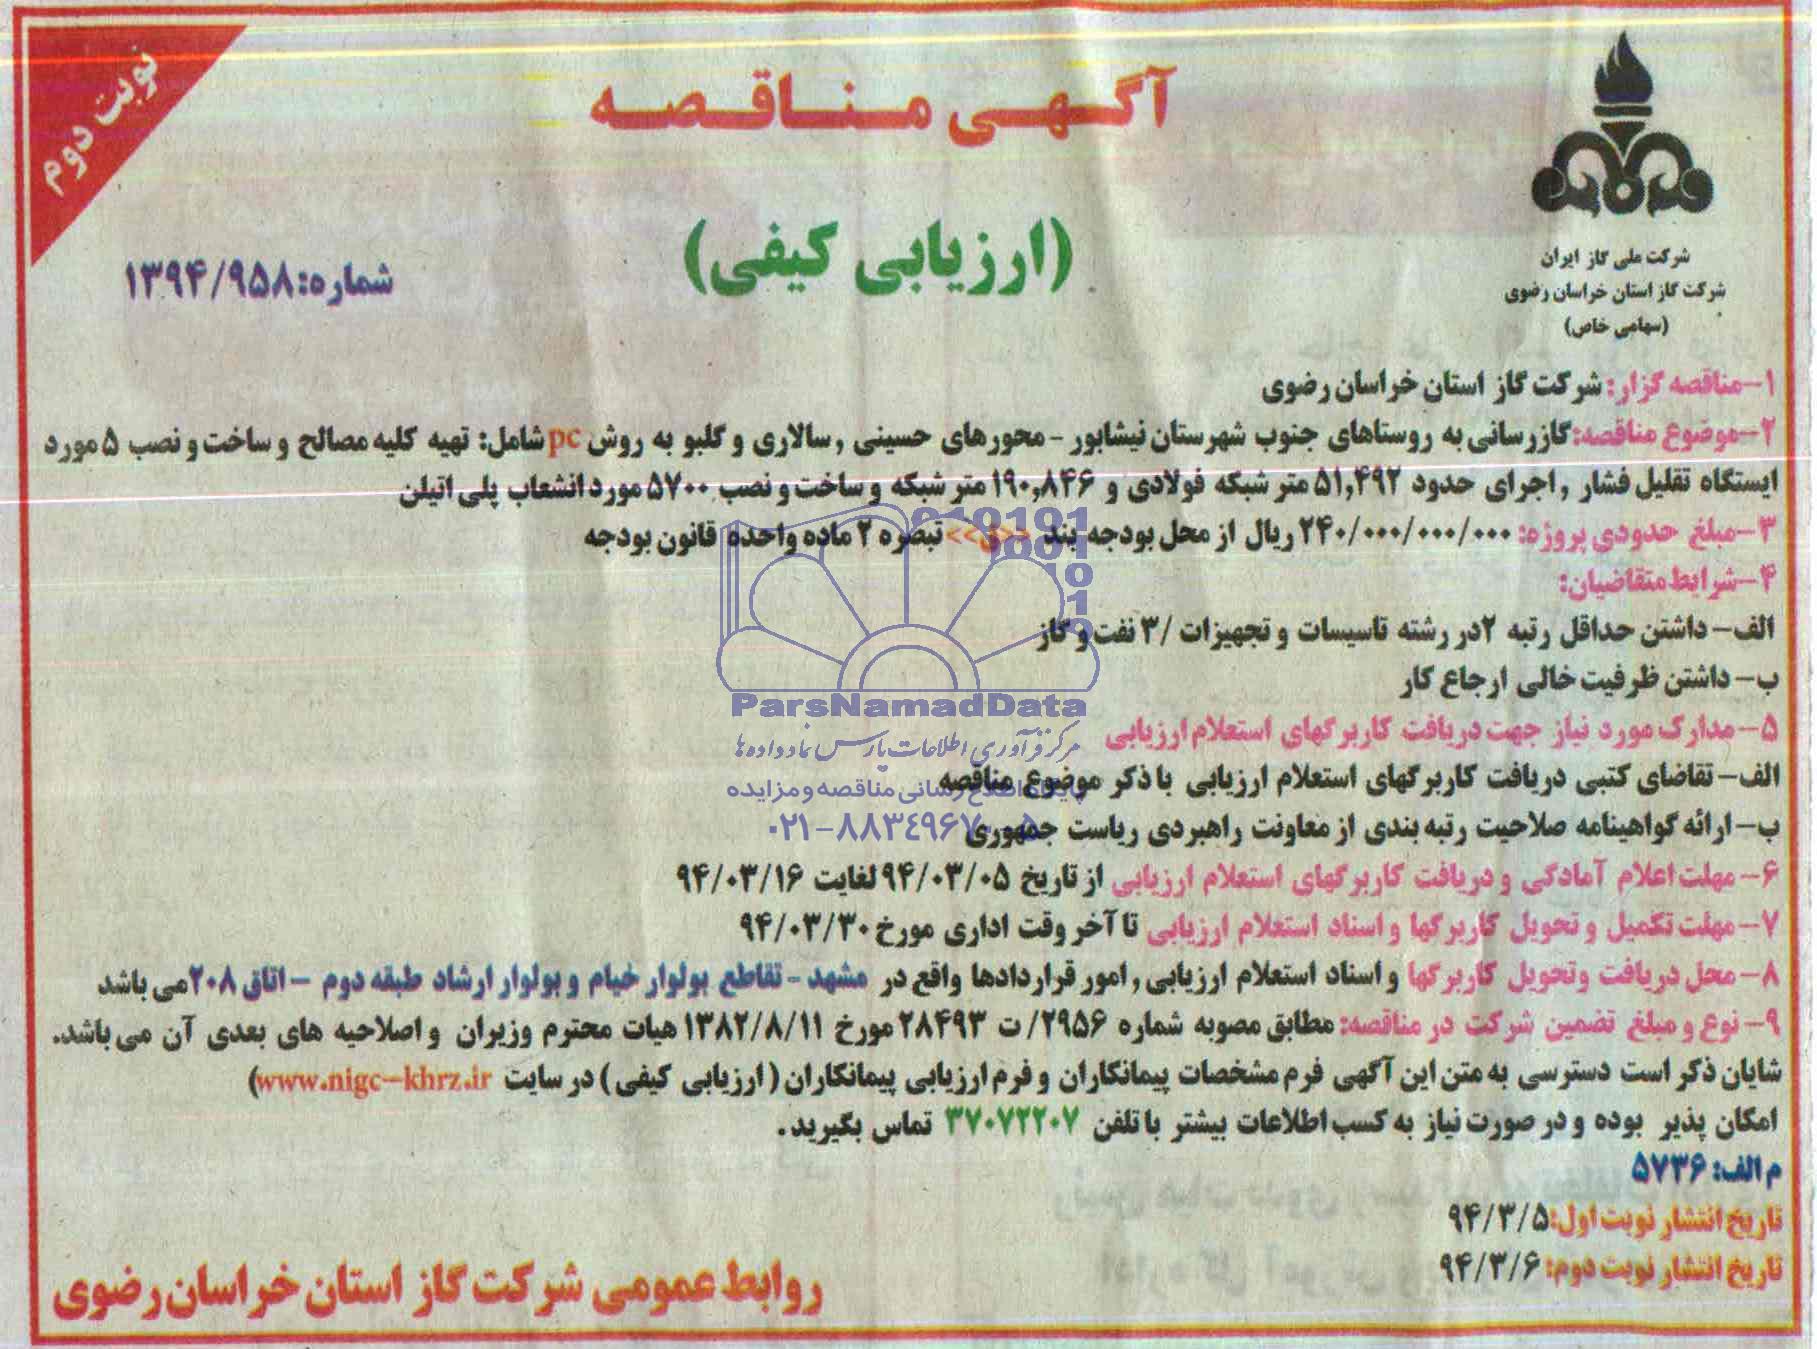 نوبت دوم
آگهی مناقصه
(ارزیابی کیفی)
شماره: ۱۳۹۴/۹۵۸
شرکت ملی گاز ایران
شرکت گاز استان خراسان رضوی
(سهامی خاص)
۱-مناقصه گزار: شرکت گاز استان خراسان رضوی
۲-موضوع مناقصه: گازرسانی به روستاهای جنوب شهرستان نیشابور - محورهای حسینی , سالاری و گلبو به روش pc شامل: تهیه کلیه مصالح و ساخت و نصب ۵ مورد
ایستگاه تقلیل فشار , اجرای حدود ۵۱,۴۹۲ متر شبکه فولادی و ۱۹۰,۸۴۶ متر شبکه و ساخت و نصب ۵۷۰۰ مورد انشعاب پلی اتیلن
۳-مبلغ حدودی پروژه: ۲۴۰/۰۰۰/۰۰۰/۰۰۰ ریال از محل بودجه بند <<ق>> تبصره ۲ ماده واحده قانون بودجه
۴-شرایط متقاضیان:
الف- داشتن حداقل رتبه ۲ در رشته تاسیسات و تجهیزات /۳ نفت و گاز
ب- داشتن ظرفیت خالی ارجاع کار
۵-مدارک مورد نیاز جهت دریافت کاربرگهای استعلام ارزیابی
الف- تقاضای کتبی دریافت کاربرگهای استعلام ارزیابی با ذکر موضوع مناقصه
ب- ارائه گواهینامه صلاحیت رتبه بندی از معاونت راهبردی ریاست جمهوری
۶- مهلت اعلام آمادگی و دریافت کاربرگهای استعلام ارزیابی از تاریخ ۹۴/۰۳/۰۵ لغایت ۹۴/۰۳/۱۶
۷- مهلت تکمیل و تحویل کاربرگها و اسناد استعلام ارزیابی تا آخر وقت اداری مورخ ۹۴/۰۳/۳۰
۸- محل دریافت وتحویل کاربرگها و اسناد استعلام ارزیابی , امور قراردادها واقع در مشهد - تقاطع بولوار خیام و بولوار ارشاد طبقه دوم - اتاق ۲۰۸ می باشد
۹- نوع و مبلغ تضمین شرکت در مناقصه: مطابق مصوبه شماره ۲۹۵۶/ت ۲۸۴۹۳ مورخ ۱۳۸۲/۸/۱۱ هیات محترم وزیران و اصلاحیه های بعدی آن می باشد.
شایان ذکر است دسترسی به متن این آگهی فرم مشخصات پیمانکاران و فرم ارزیابی پیمانکاران (ارزیابی کیفی) در سایت www.nigc-khrz.ir)
امکان پذیر بوده و در صورت نیاز به کسب اطلاعات بیشتر با تلفن ۳۷۰۷۲۲۰۷ تماس بگیرید.
م الف: ۵۷۳۶
تاریخ انتشار نوبت اول: ۹۴/۳/۵
تاریخ انتشار نوبت دوم: ۹۴/۳/۶
روابط عمومی شرکت گاز استان خراسان رضوی
ParsNamadData
مرکز فرآوری اطلاعات پارس نماد داده ها
پایگاه اطلاع رسانی مناقصه و مزایده